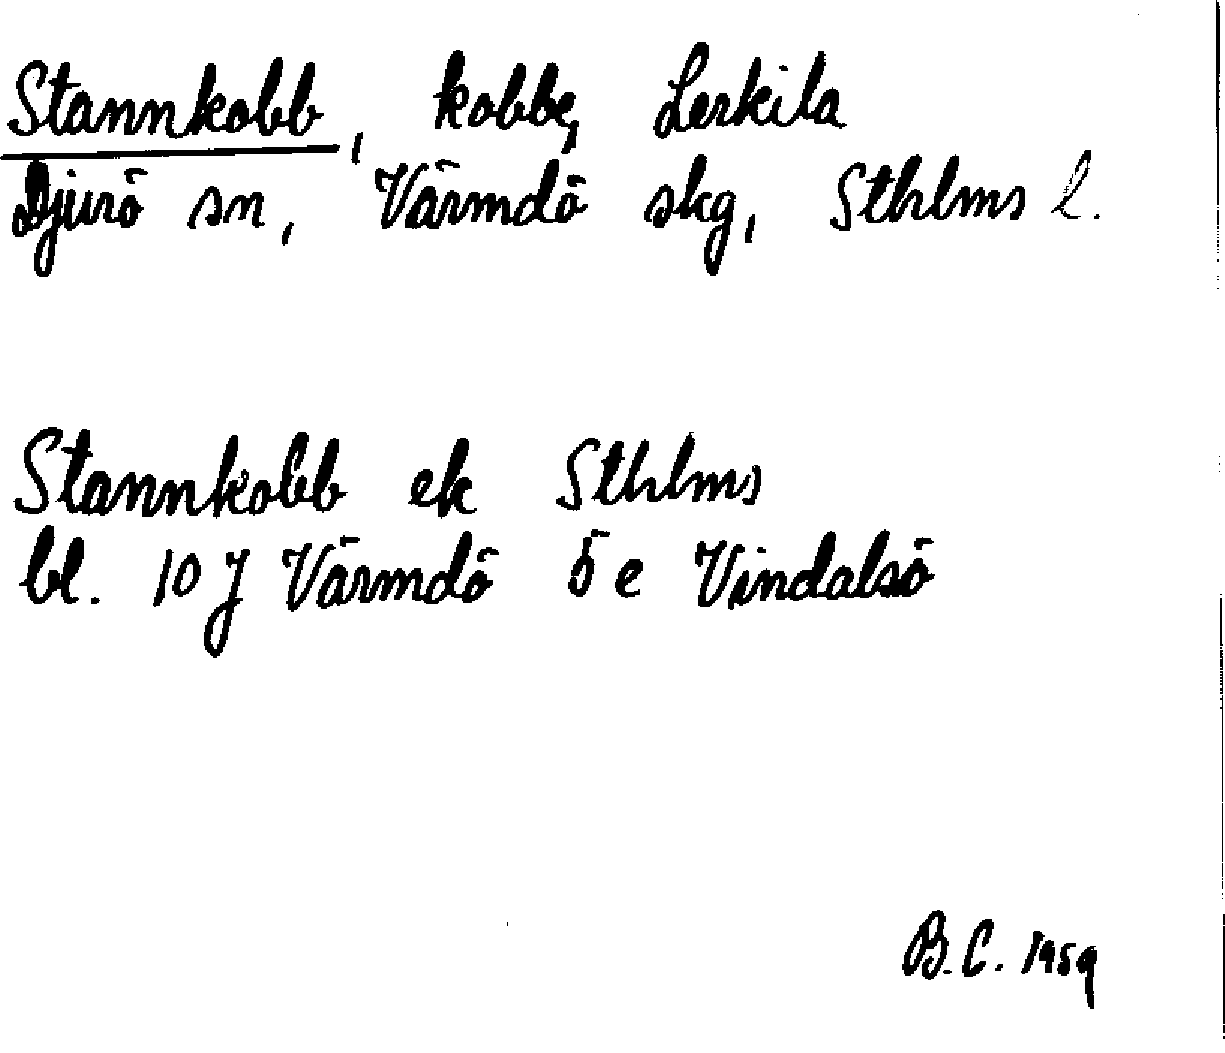 Stannkobb, kobbe, Lerkila
Djurö sn, Värmdö skg, Sthlms l.
Stannkobb ek Sthlms
bl. 10 J Värmdö 5 e Vindalsö
B.C. 1959